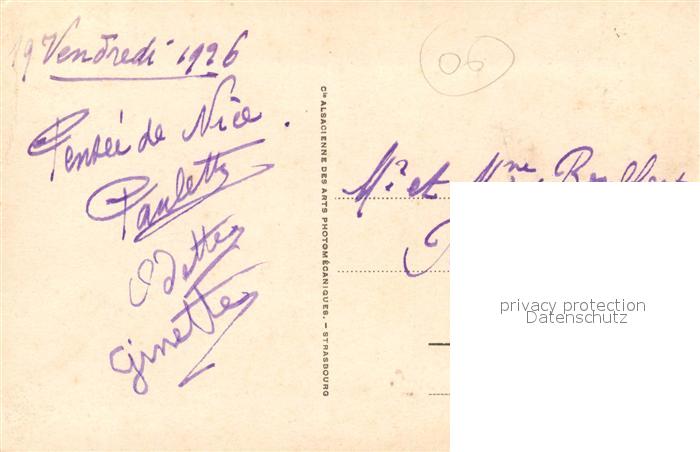 19 Vendredi 1926
Pensée de Nice.
Paulette
Odette
Ginette
06
Cie ALSACIENNE DES ARTS PHOTOMÉCANIQUES. – STRASBOURG
Mr et Mme
privacy protection
Datenschutz